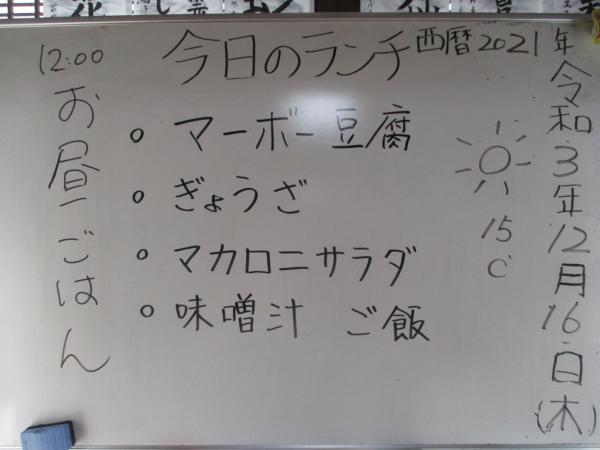 今日のランチ
西暦2021年
令和3年12月16日(木)
15
C
12:00
お昼ごはん
○ マーボー豆腐
○ ぎょうざ
○ マカロニサラダ
○ 味噌汁 ご飯